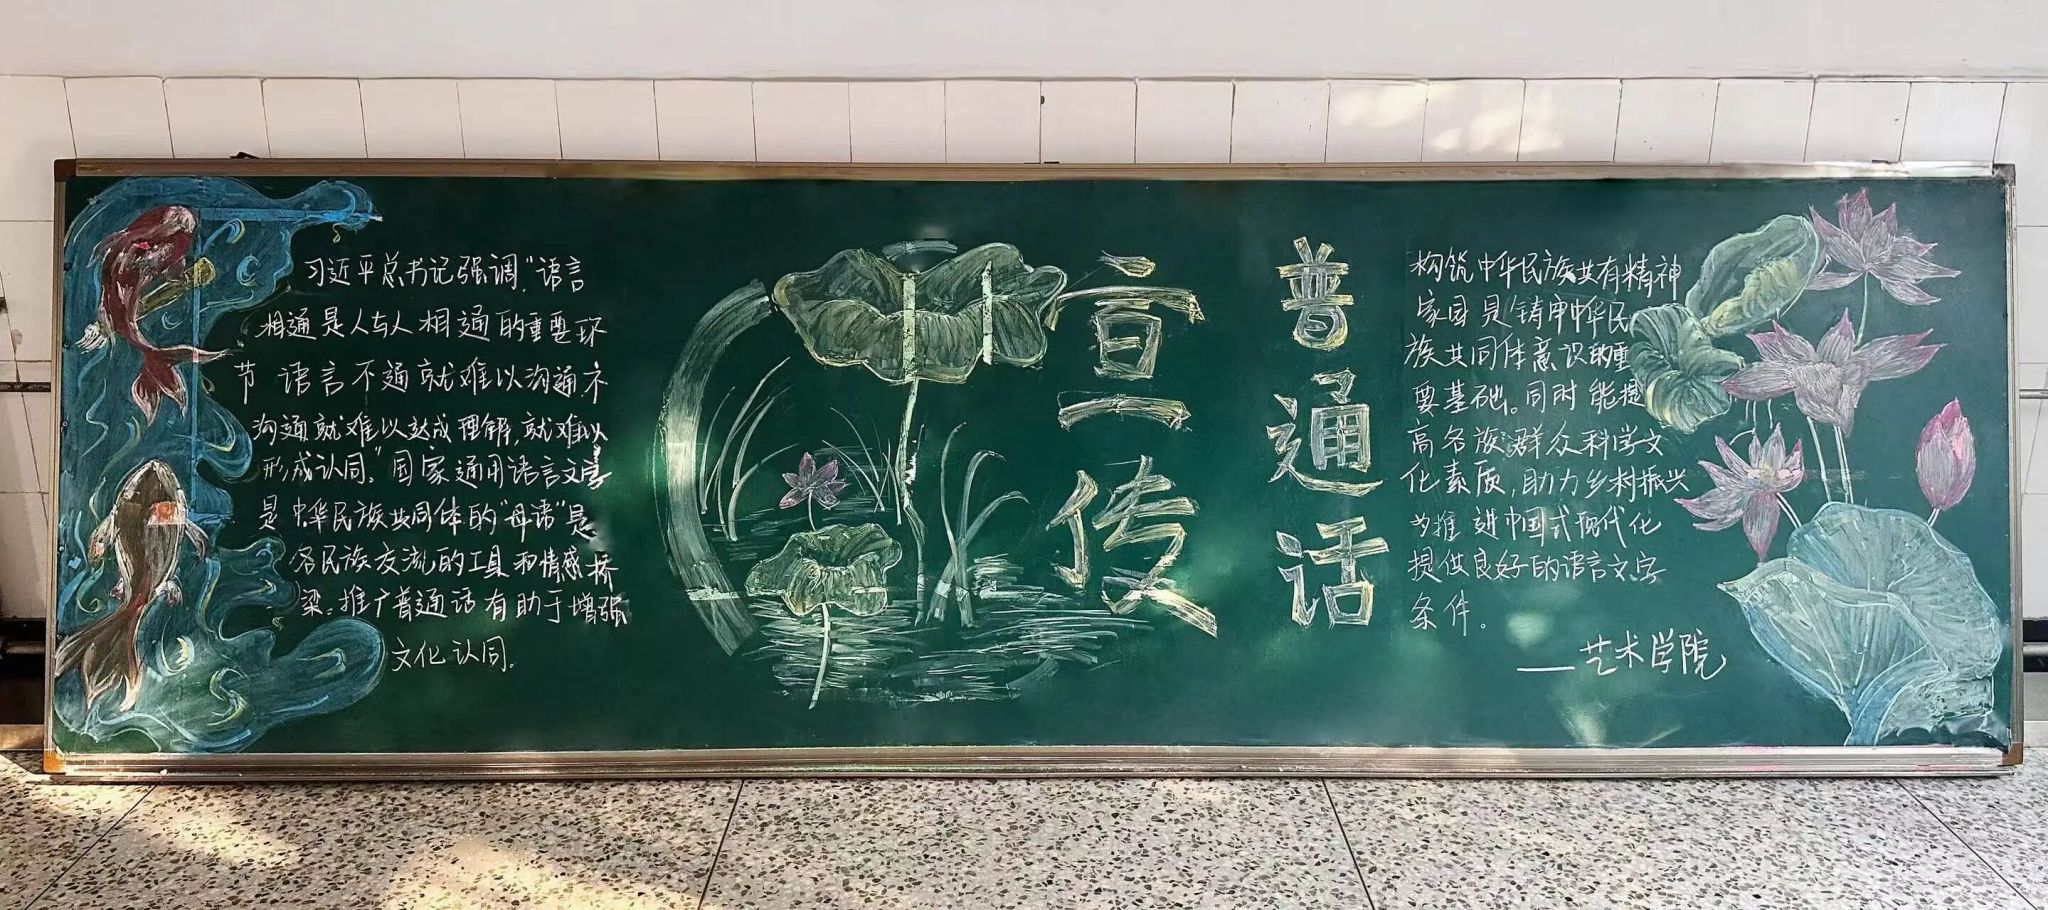 习近平总书记强调,"语言
相通是人与人相通的重要环
节 语言不通就难以沟通,不
沟通就难以达成理解,就难以
形成认同。"国家通用语言文字
是中华民族共同体的"母语"是
各民族交流的工具和情感桥
梁。推广普通话有助于增强
文化认同。
普通话
宣传
构筑中华民族共有精神
家园是铸牢中华民
族共同体意识的重
要基础。同时能提
高各族群众科学文
化素质,助力乡村振兴
为推进中国式现代化
提供良好的语言文字
条件。
——艺术学院